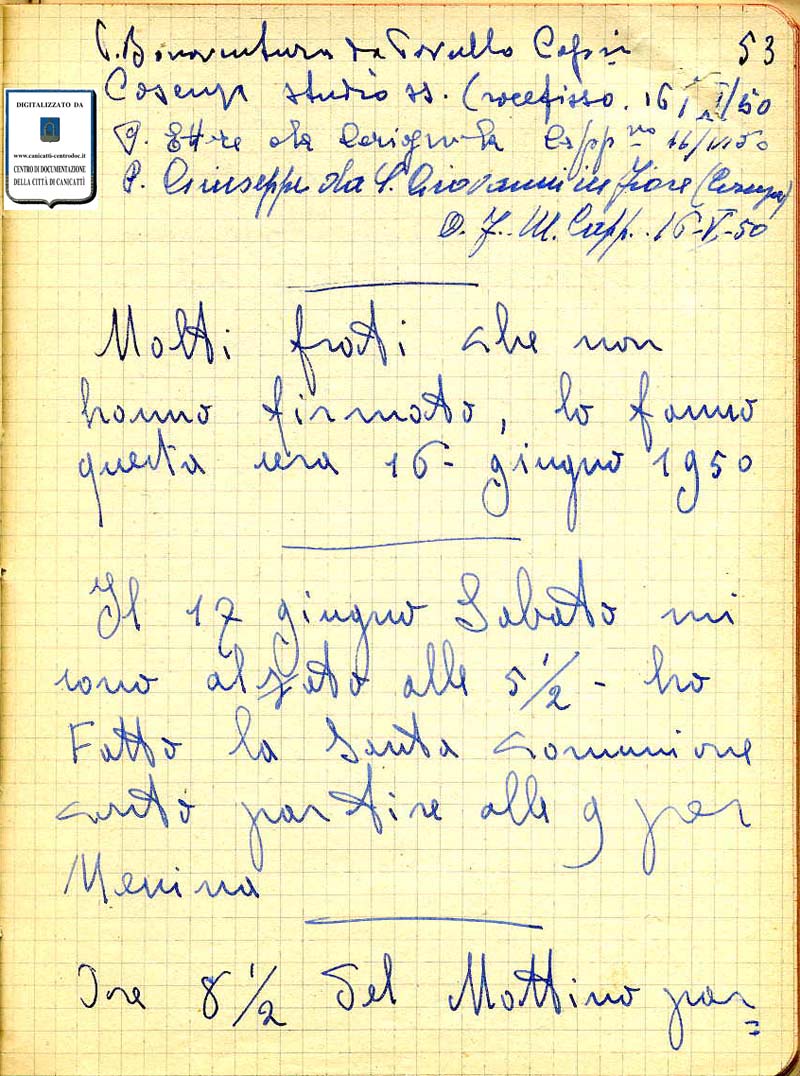 P. Bonaventura da Capp.
53
Cosenza studio ss. Crocefisso. 16/ /50
DIGITALIZZATO DA
www.canicatti-centrodoc.it
CENTRO DI DOCUMENTAZIONE
DELLA CITTÀ DI CANICATTÌ
P. Ettore da Cerignola Capp.no 16/ 50
P. Giuseppe da S. Giovanni in Fiore (Cosenza)
O. F. M. Capp. 16-VI-50
Molti frati che non
hanno firmato, lo fanno
questa sera 16- giugno 1950
Il 17 giugno Sabato mi
sono alzato alle 5 1/2 - ho
Fatto la Santa comunione
conto partire alle 9 per
Messina
Ore 8 1/2 del Mattino par=